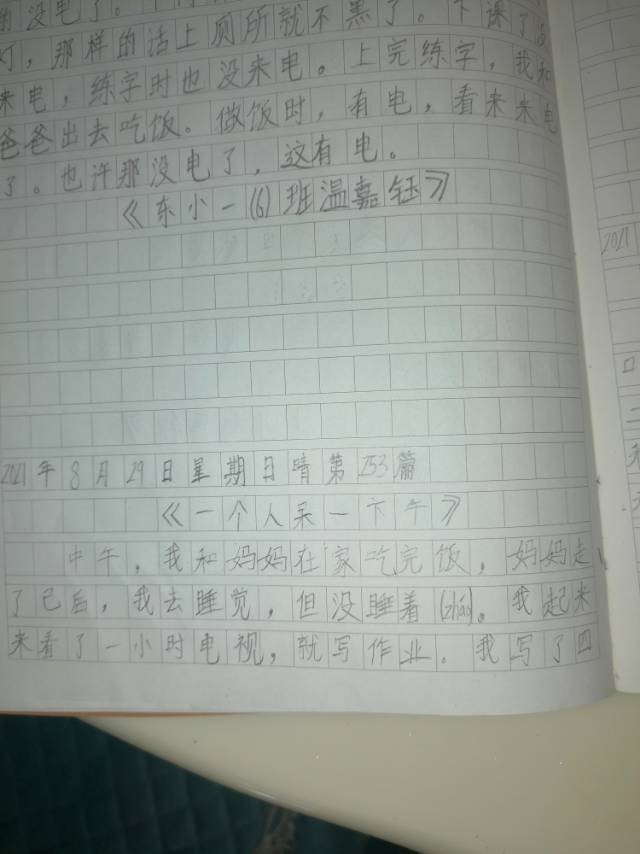 的没电了。
灯，那样的话上厕所就不黑了。下课了没
来电，练字时也没来电。上完练字，我和
爸爸出去吃饭。做饭时，有电，看来来电
了。也许那没电了，这有电。
《东小一(6)班温嘉钰》
2021年8月29日星期日晴第253篇
《一个人呆一下午》
中午，我和妈妈在家吃完饭，妈妈走
了已后，我去睡觉，但没睡着(zháo)。我起来
来看了一小时电视，就写作业。我写了四
2021